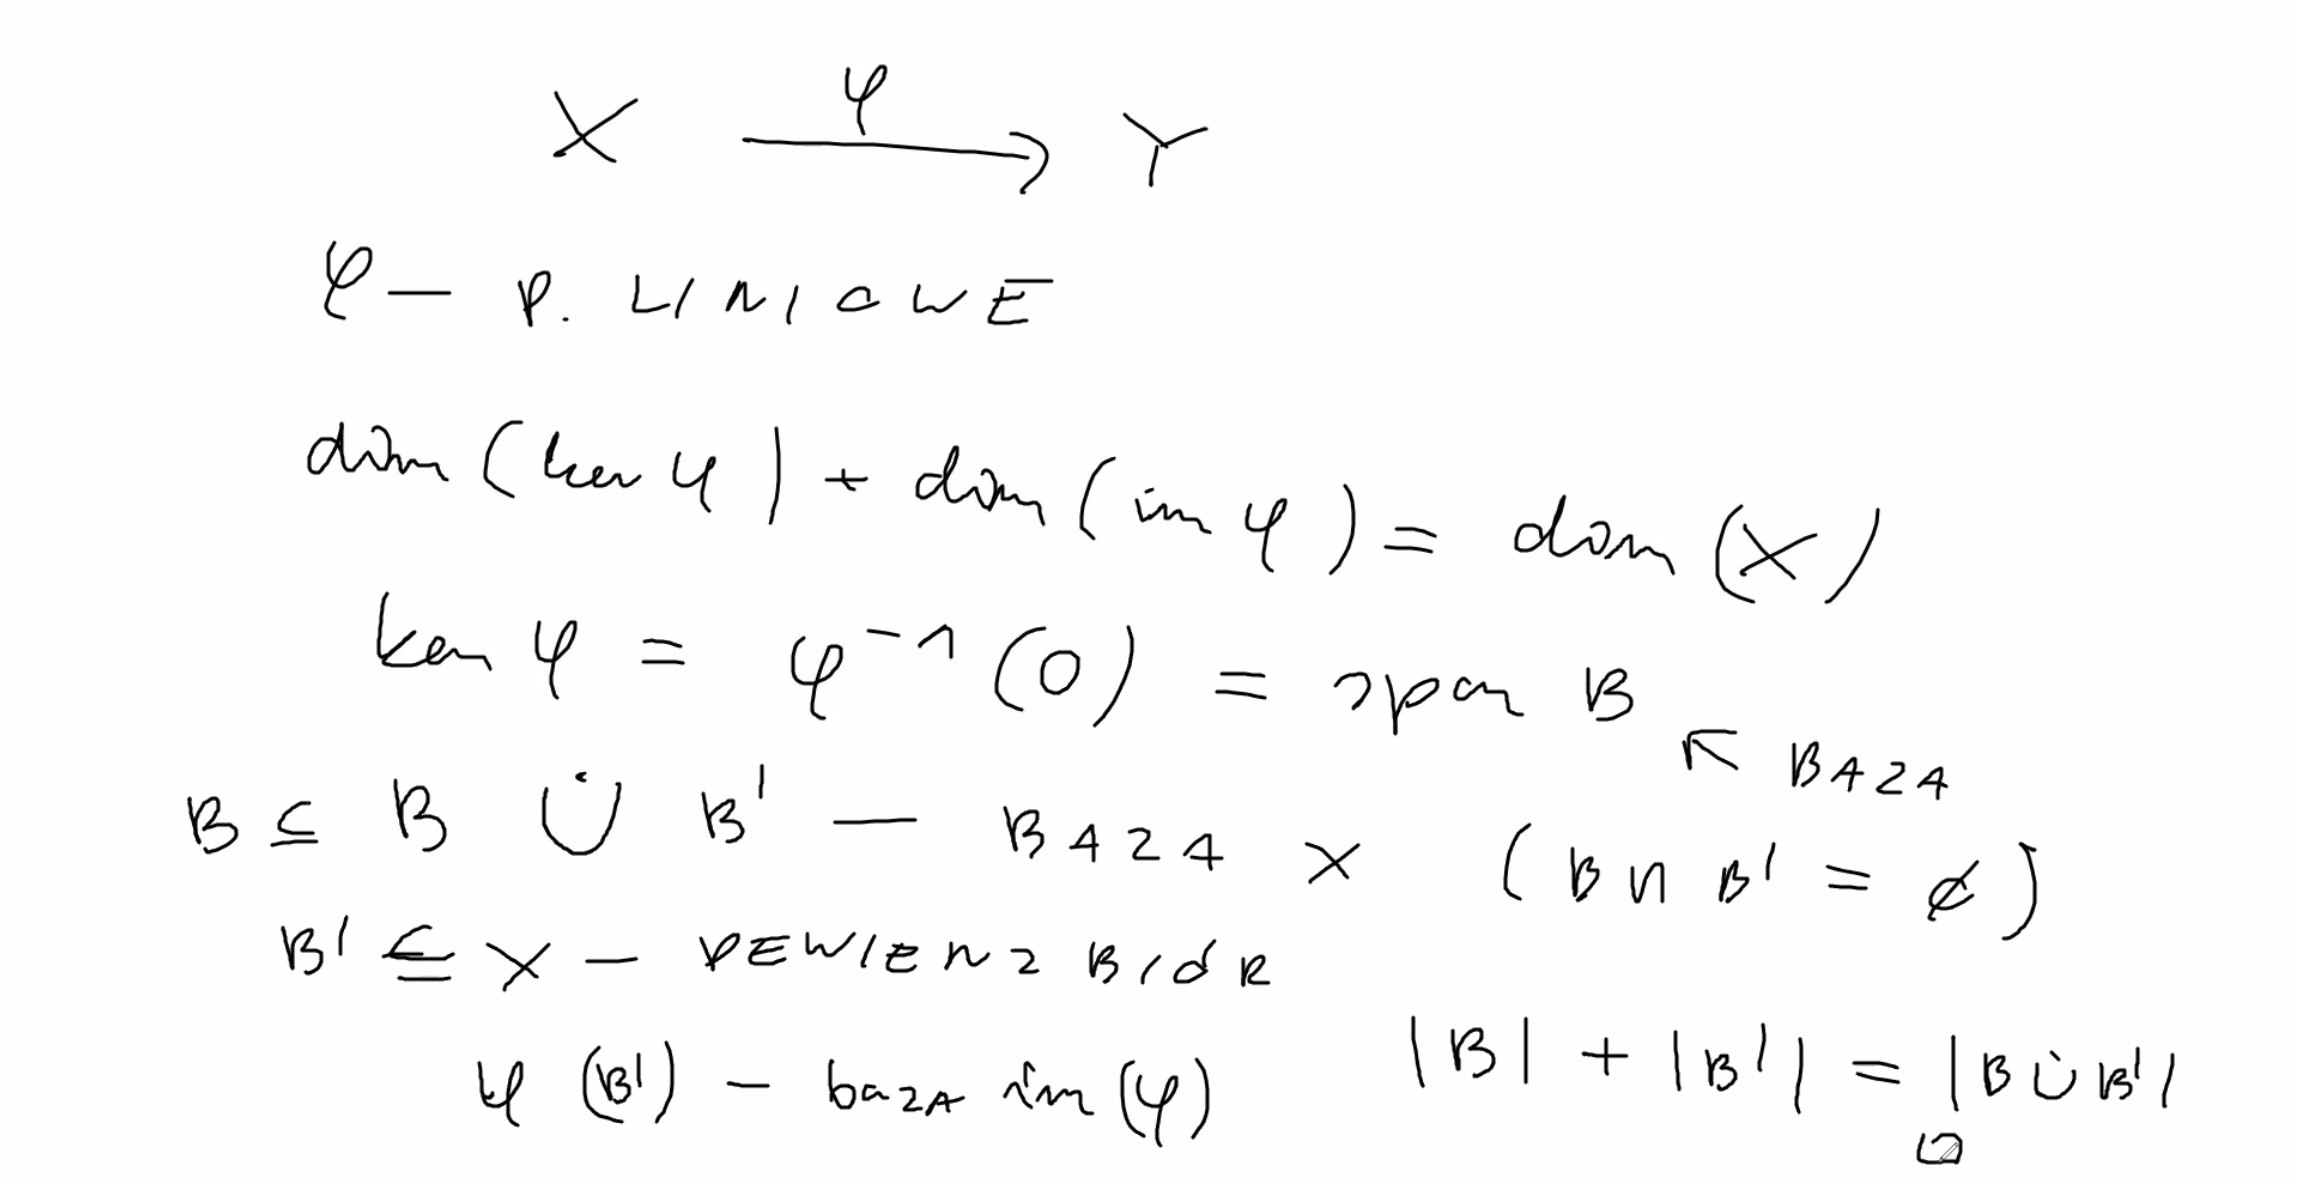 X —φ→ Y
φ – P. LINIOWE
dim (ker φ) + dim (im φ) = dim (X)
ker φ = φ⁻¹(0) = span B
↖ BAZA
B ⊆ B ∪̇ B' – BAZA X (B ∩ B' = ∅)
B' ⊆ X – PEWIEN ZBIÓR
φ (B') – baza im (φ)
|B| + |B'| = |B ∪̇ B'|
□